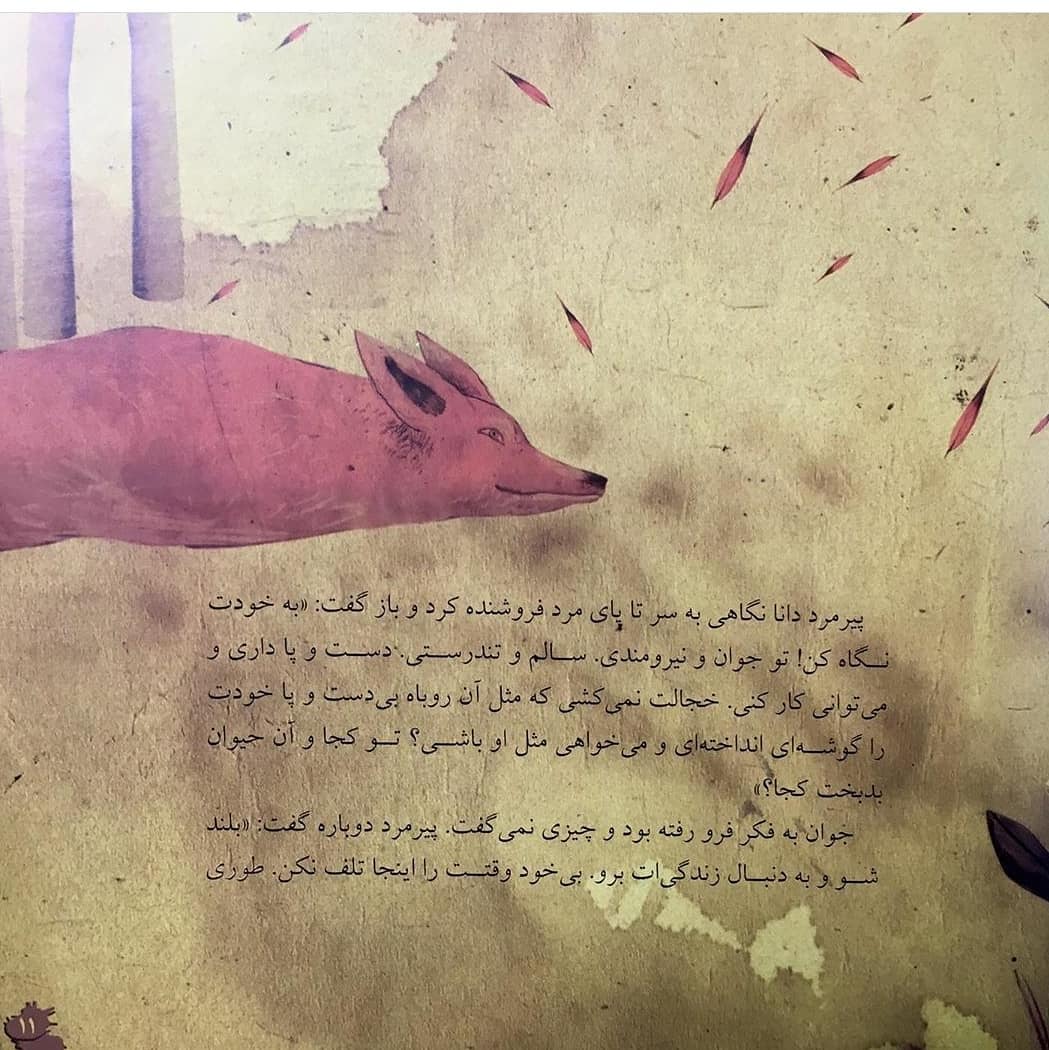 پیرمرد دانا نگاهی به سر تا پای مرد فروشنده کرد و باز گفت: «به خودت
نگاه کن! تو جوان و نیرومندی. سالم و تندرستی. دست و پا داری و
می‌توانی کار کنی. خجالت نمی‌کشی که مثل آن روباه بی‌دست و پا خودت
را گوشه‌ای انداخته‌ای و می‌خواهی مثل او باشی؟ تو کجا و آن حیوان
بدبخت کجا؟»
جوان به فکر فرو رفته بود و چیزی نمی‌گفت. پیرمرد دوباره گفت: «بلند
شو و به دنبال زندگی‌ات برو. بی‌خود وقتت را اینجا تلف نکن. طوری
۱۱